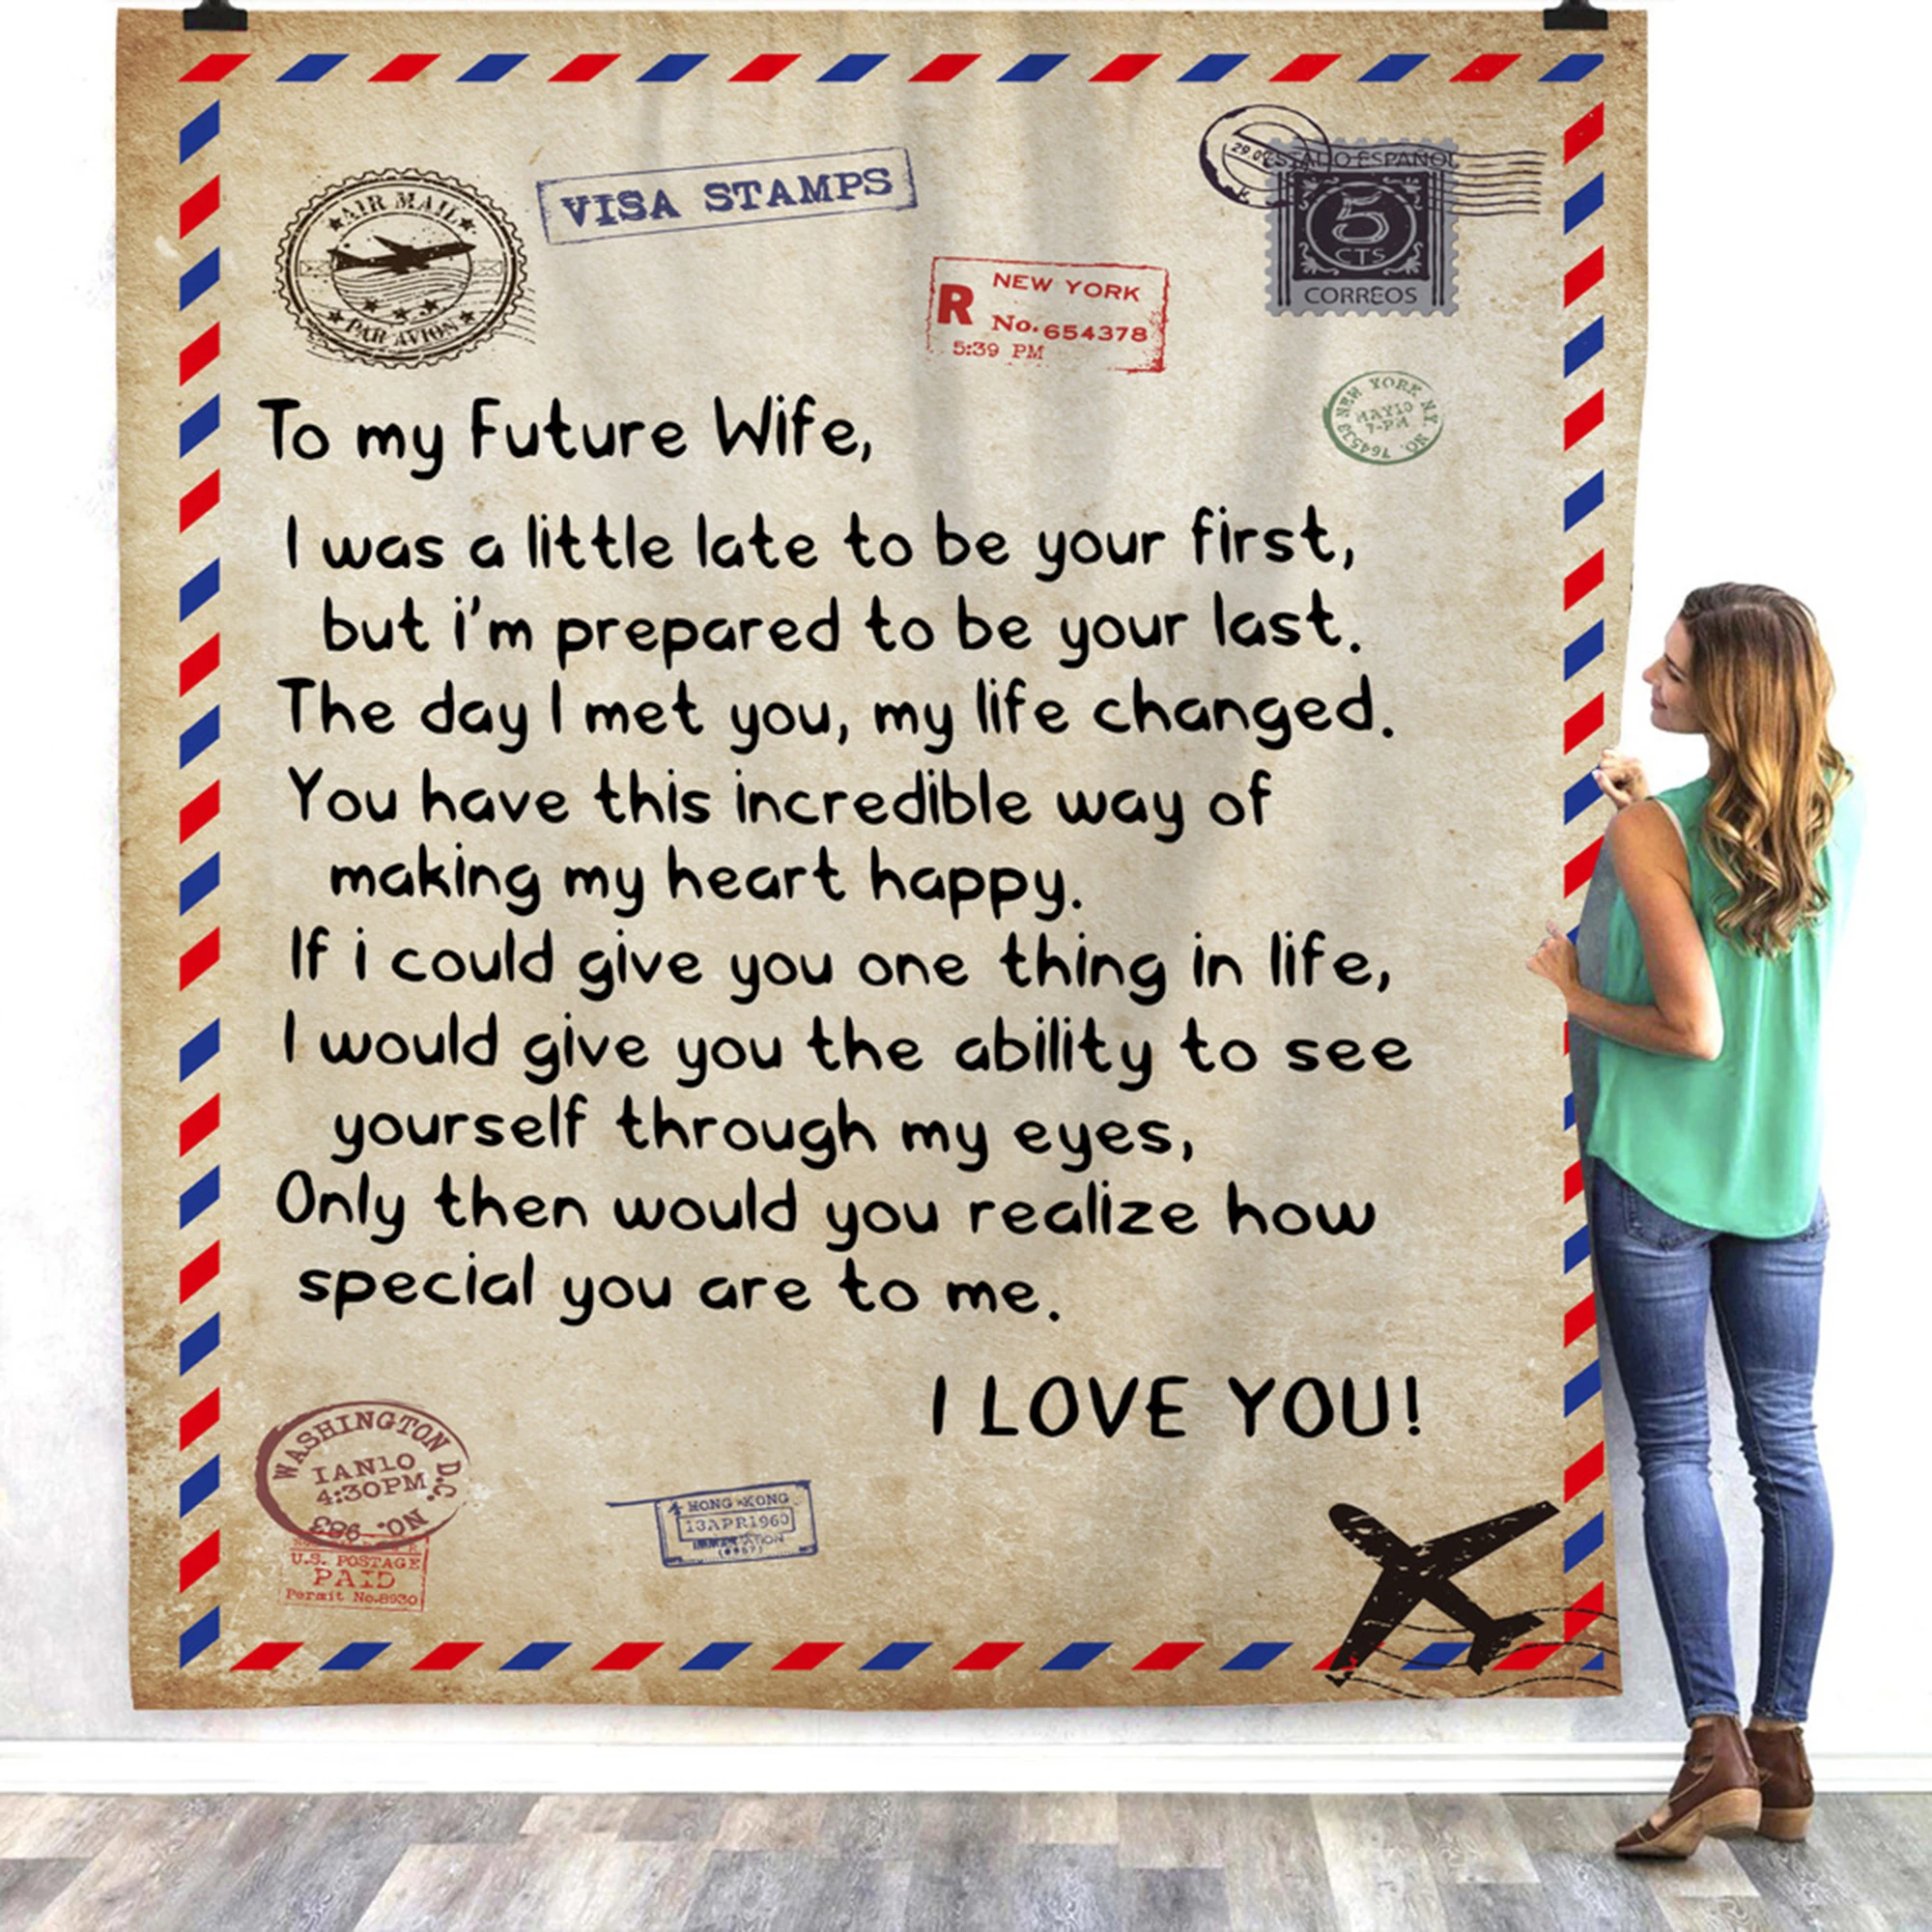 AIR MAIL
PAR AVION
VISA STAMPS
NEW YORK
R No. 654378
5:39 PM
29.0
ESTADO ESPAÑOL
5
CTS
CORREOS
NEW YORK N.Y.
MAY10
7-PM
NO. 764533
To my Future Wife,
I was a little late to be your first,
but i'm prepared to be your last.
The day I met you, my life changed.
You have this incredible way of
making my heart happy.
If i could give you one thing in life,
I would give you the ability to see
yourself through my eyes,
Only then would you realize how
special you are to me.
I LOVE YOU!
WASHINGTON D.C.
IAN10
4:30PM
NO. 983
U.S. POSTAGE
PAID
Permit No.8930
HONG KONG
13APR1960